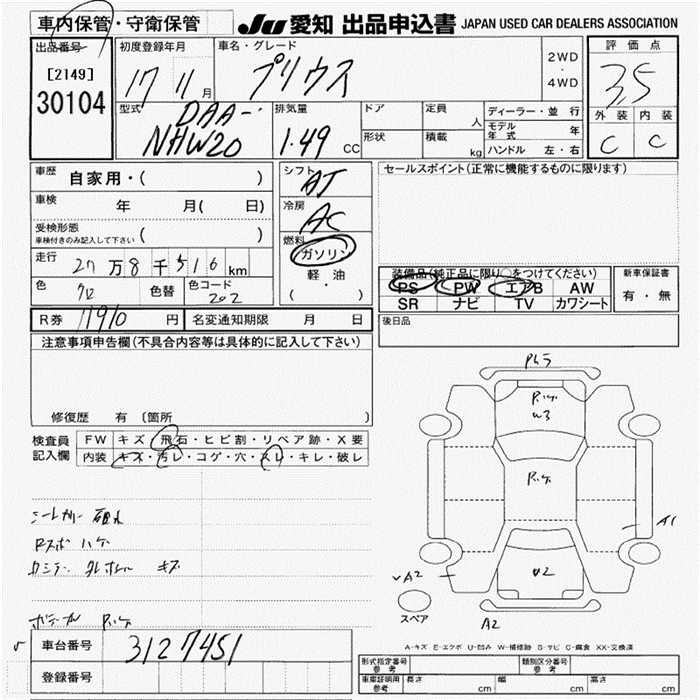 車内保管・守衛保管
JU 愛知 出品申込書 JAPAN USED CAR DEALERS ASSOCIATION
出品番号
[2149]
30104
初度登録年月
17 11月
車名・グレード
プリウス
2WD
・
4WD
評価点
3.5
外装 内装
C C
型式
DAA-
NHW20
排気量
1.49 CC
ドア
形状
定員 人
積載 kg
ディーラー・並行
モデル年式 年
ハンドル 左・右
車歴
自家用・( )
車検 年 月( 日)
受検形態
車検付きのみ記入して下さい ( )
走行 27万8千516km
色 クロ 色替 色コード 202
シフト AT
冷房 AC
燃料
ガソリン
軽・油
( ・ )
セールスポイント(正常に機能するものに限ります)
装備品(純正品に限り○をつけてください)
PS PW エアB AW
SR ナビ TV カワシート
新車保証書
有・無
R券 11910 円 名変通知期限 月 日
後日品
注意事項申告欄(不具合内容等は具体的に記入して下さい)
修復歴 有 〔箇所
検査員
記入欄
FW キズ・飛石・ヒビ割・リペア跡・X要
内装 キズ・汚レ・コゲ・穴・スレ・キレ・破レ
Ph5
W3
A1
√A2
√2
A2
スペア
A-キズ E-エクボ U-凹み W-補修跡 S-サビ C-腐食 XX-交換済
車台番号 3127451
登録番号
形式指定番号 参考
類別区分番号 参考
車庫証明用 参考 長さ cm 幅 cm 高さ cm